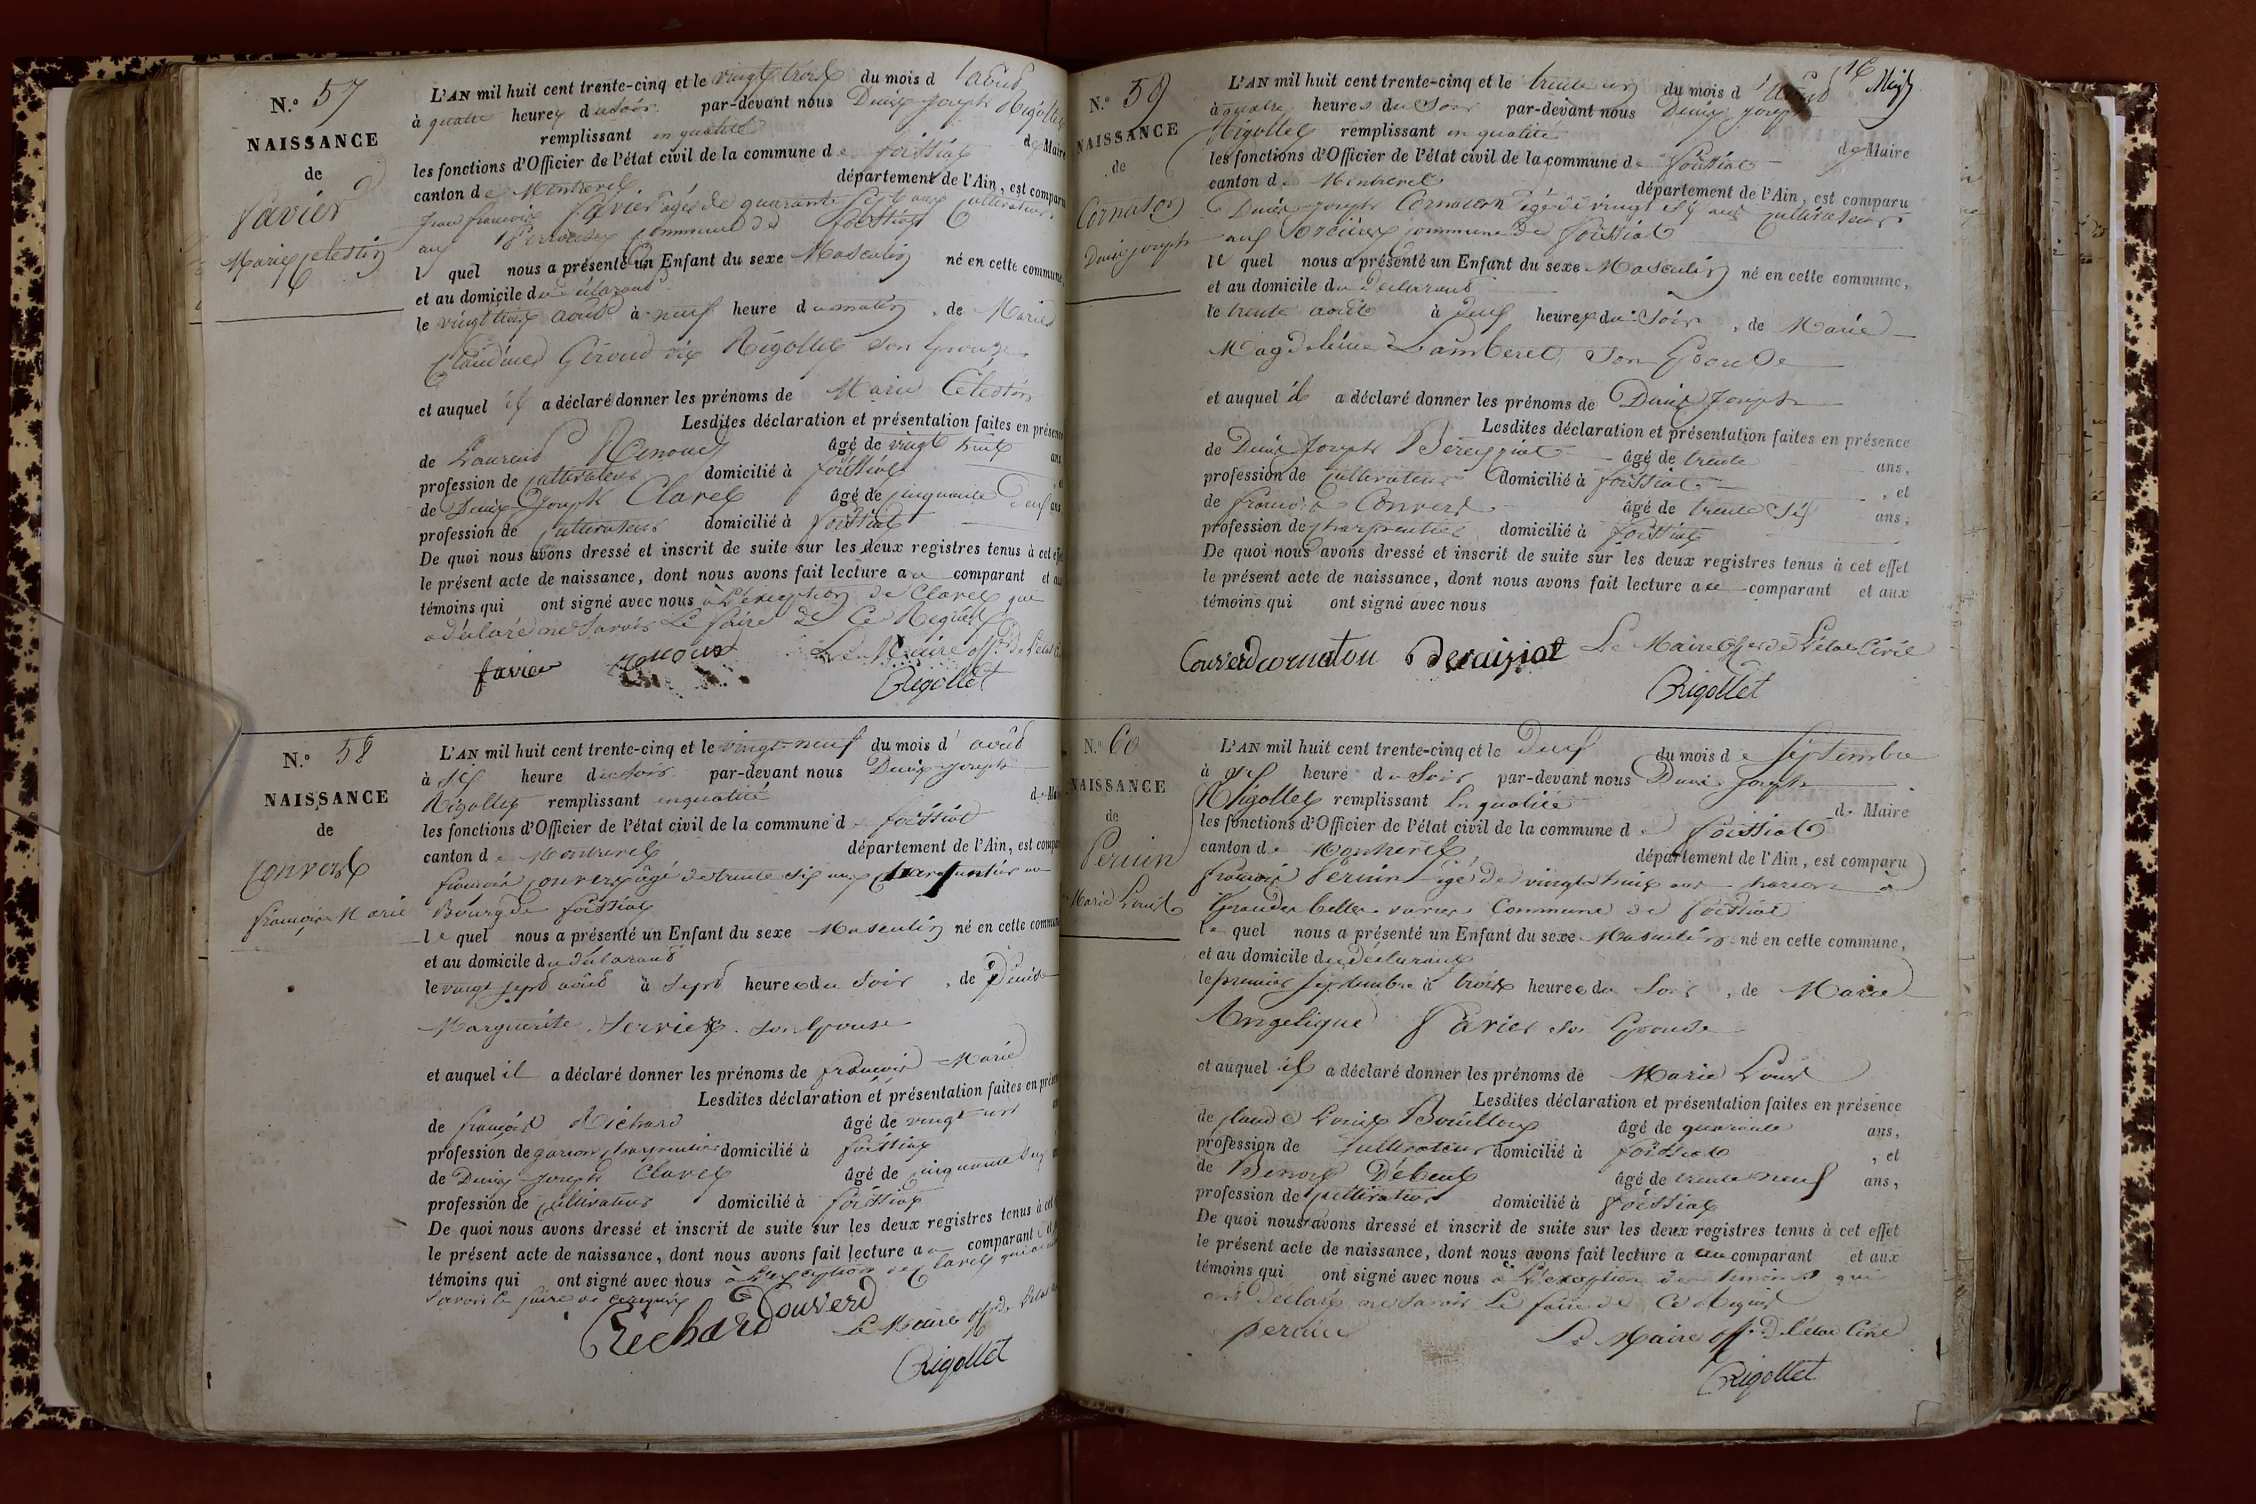 N.° 57
NAISSANCE
de
Favier
Marie Celestin
L'AN mil huit cent trente-cinq et le vingt trois du mois d'août
à quatre heures du soir par-devant nous Denis Joseph Rigollet
remplissant en qualité de Maire
les fonctions d'Officier de l'état civil de la commune de foissiat
canton de Montrevel département de l'Ain, est comparu
Jean francois Favier agé de quarante sept ans Cultivateur
aux commune de foissiat
lequel nous a présenté un Enfant du sexe Masculin né en cette commune,
et au domicile du déclarant
le vingt trois août à neuf heure du matin, de Marie
Claudine Giroud dit Rigollet son Epouse
et auquel il a déclaré donner les prénoms de Marie Célestin
Lesdites déclaration et présentation faites en présence
de Laurent Renoud âgé de vingt huit ans
profession de cultivateur domicilié à foissiat
de Denis Joseph Clavel âgé de cinquante deux ans
profession de cultivateur domicilié à foissiat
De quoi nous avons dressé et inscrit de suite sur les deux registres tenus à cet effet
le présent acte de naissance, dont nous avons fait lecture au comparant et aux
témoins qui ont signé avec nous à l'exception de Clavel qui
a déclaré ne savoir le faire de ce Requis
Le Maire off. de l'état
favier Renoud
Rigollet
N.° 58
NAISSANCE
de
Convert
françois Marie
L'AN mil huit cent trente-cinq et le vingt-neuf du mois d'août
à six heure du soir par-devant nous Denis Joseph
Rigollet remplissant en qualité de Maire
les fonctions d'Officier de l'état civil de la commune de foissiat
canton de Montrevel département de l'Ain, est comparu
francois Convert âgé de trente six ans charpentier au
Bourg de foissiat
lequel nous a présenté un Enfant du sexe Masculin né en cette commune
et au domicile du déclarant
le vingt sept août à sept heures du soir, de Denise
Marguerite Servier son Epouse
et auquel il a déclaré donner les prénoms de françois Marie
Lesdites déclaration et présentation faites en présence
de françois Richard âgé de vingt
profession de garçon charpentier domicilié à foissiat
de Denis Joseph Clavel âgé de cinquante deux
profession de Cultivateur domicilié à foissiat
De quoi nous avons dressé et inscrit de suite sur les deux registres tenus à cet
le présent acte de naissance, dont nous avons fait lecture au comparant et
témoins qui ont signé avec nous à l'exception de Clavel qui
savoir le faire de ce requis
Richard Couverd
Le Maire off. de l'état
Rigollet
16 Meiz
N.° 59
NAISSANCE
de
Cornaton
Denis joseph
L'AN mil huit cent trente-cinq et le trente un du mois d'août
à quatre heures du soir par-devant nous Denis Joseph
Rigollet remplissant en qualité de Maire
les fonctions d'Officier de l'état civil de la commune de foissiat
canton de Montrevel département de l'Ain, est comparu
Denis Joseph Cornaton âgé de vingt six ans cultivateur
aux commune de foissiat
lequel nous a présenté un Enfant du sexe Masculin né en cette commune,
et au domicile du déclarant
le trente août à deux heures du soir, de Marie
Magdeleine Lamberet son Epouse
et auquel il a déclaré donner les prénoms de Denis Joseph
Lesdites déclaration et présentation faites en présence
de Denis Joseph Bereyziat âgé de trente ans,
profession de cultivateur domicilié à foissiat, et
de francois Convert âgé de trente six ans,
profession de charpentier domicilié à foissiat
De quoi nous avons dressé et inscrit de suite sur les deux registres tenus à cet effet
le présent acte de naissance, dont nous avons fait lecture au comparant et aux
témoins qui ont signé avec nous
Couverd cornaton Beraiziat Le Maire Off. de l'état Civil
Rigollet
N.° 60
NAISSANCE
de
Perrin
Marie Louis
L'AN mil huit cent trente-cinq et le deux du mois de septembre
à six heure du soir par-devant nous Denis Joseph
Rigollet remplissant en qualité de Maire
les fonctions d'Officier de l'état civil de la commune de foissiat
canton de Montrevel département de l'Ain, est comparu
francois Perrin âgé de vingt huit ans à
commune de foissiat
lequel nous a présenté un Enfant du sexe Masculin né en cette commune,
et au domicile du déclarant
le premier septembre à trois heures du soir, de Marie
Angelique Favier son Epouse
et auquel il a déclaré donner les prénoms de Marie Louis
Lesdites déclaration et présentation faites en présence
de Claude Louis Bouilloux âgé de quarante ans,
profession de cultivateur domicilié à foissiat, et
de Benoit Debeut âgé de trente neuf ans,
profession de cultivateur domicilié à foissiat
De quoi nous avons dressé et inscrit de suite sur les deux registres tenus à cet effet
le présent acte de naissance, dont nous avons fait lecture a au comparant et aux
témoins qui ont signé avec nous à l'exception des témoins qui
ont déclaré ne savoir le faire de ce Requis
perrin Le Maire off. de l'état Civil
Rigollet